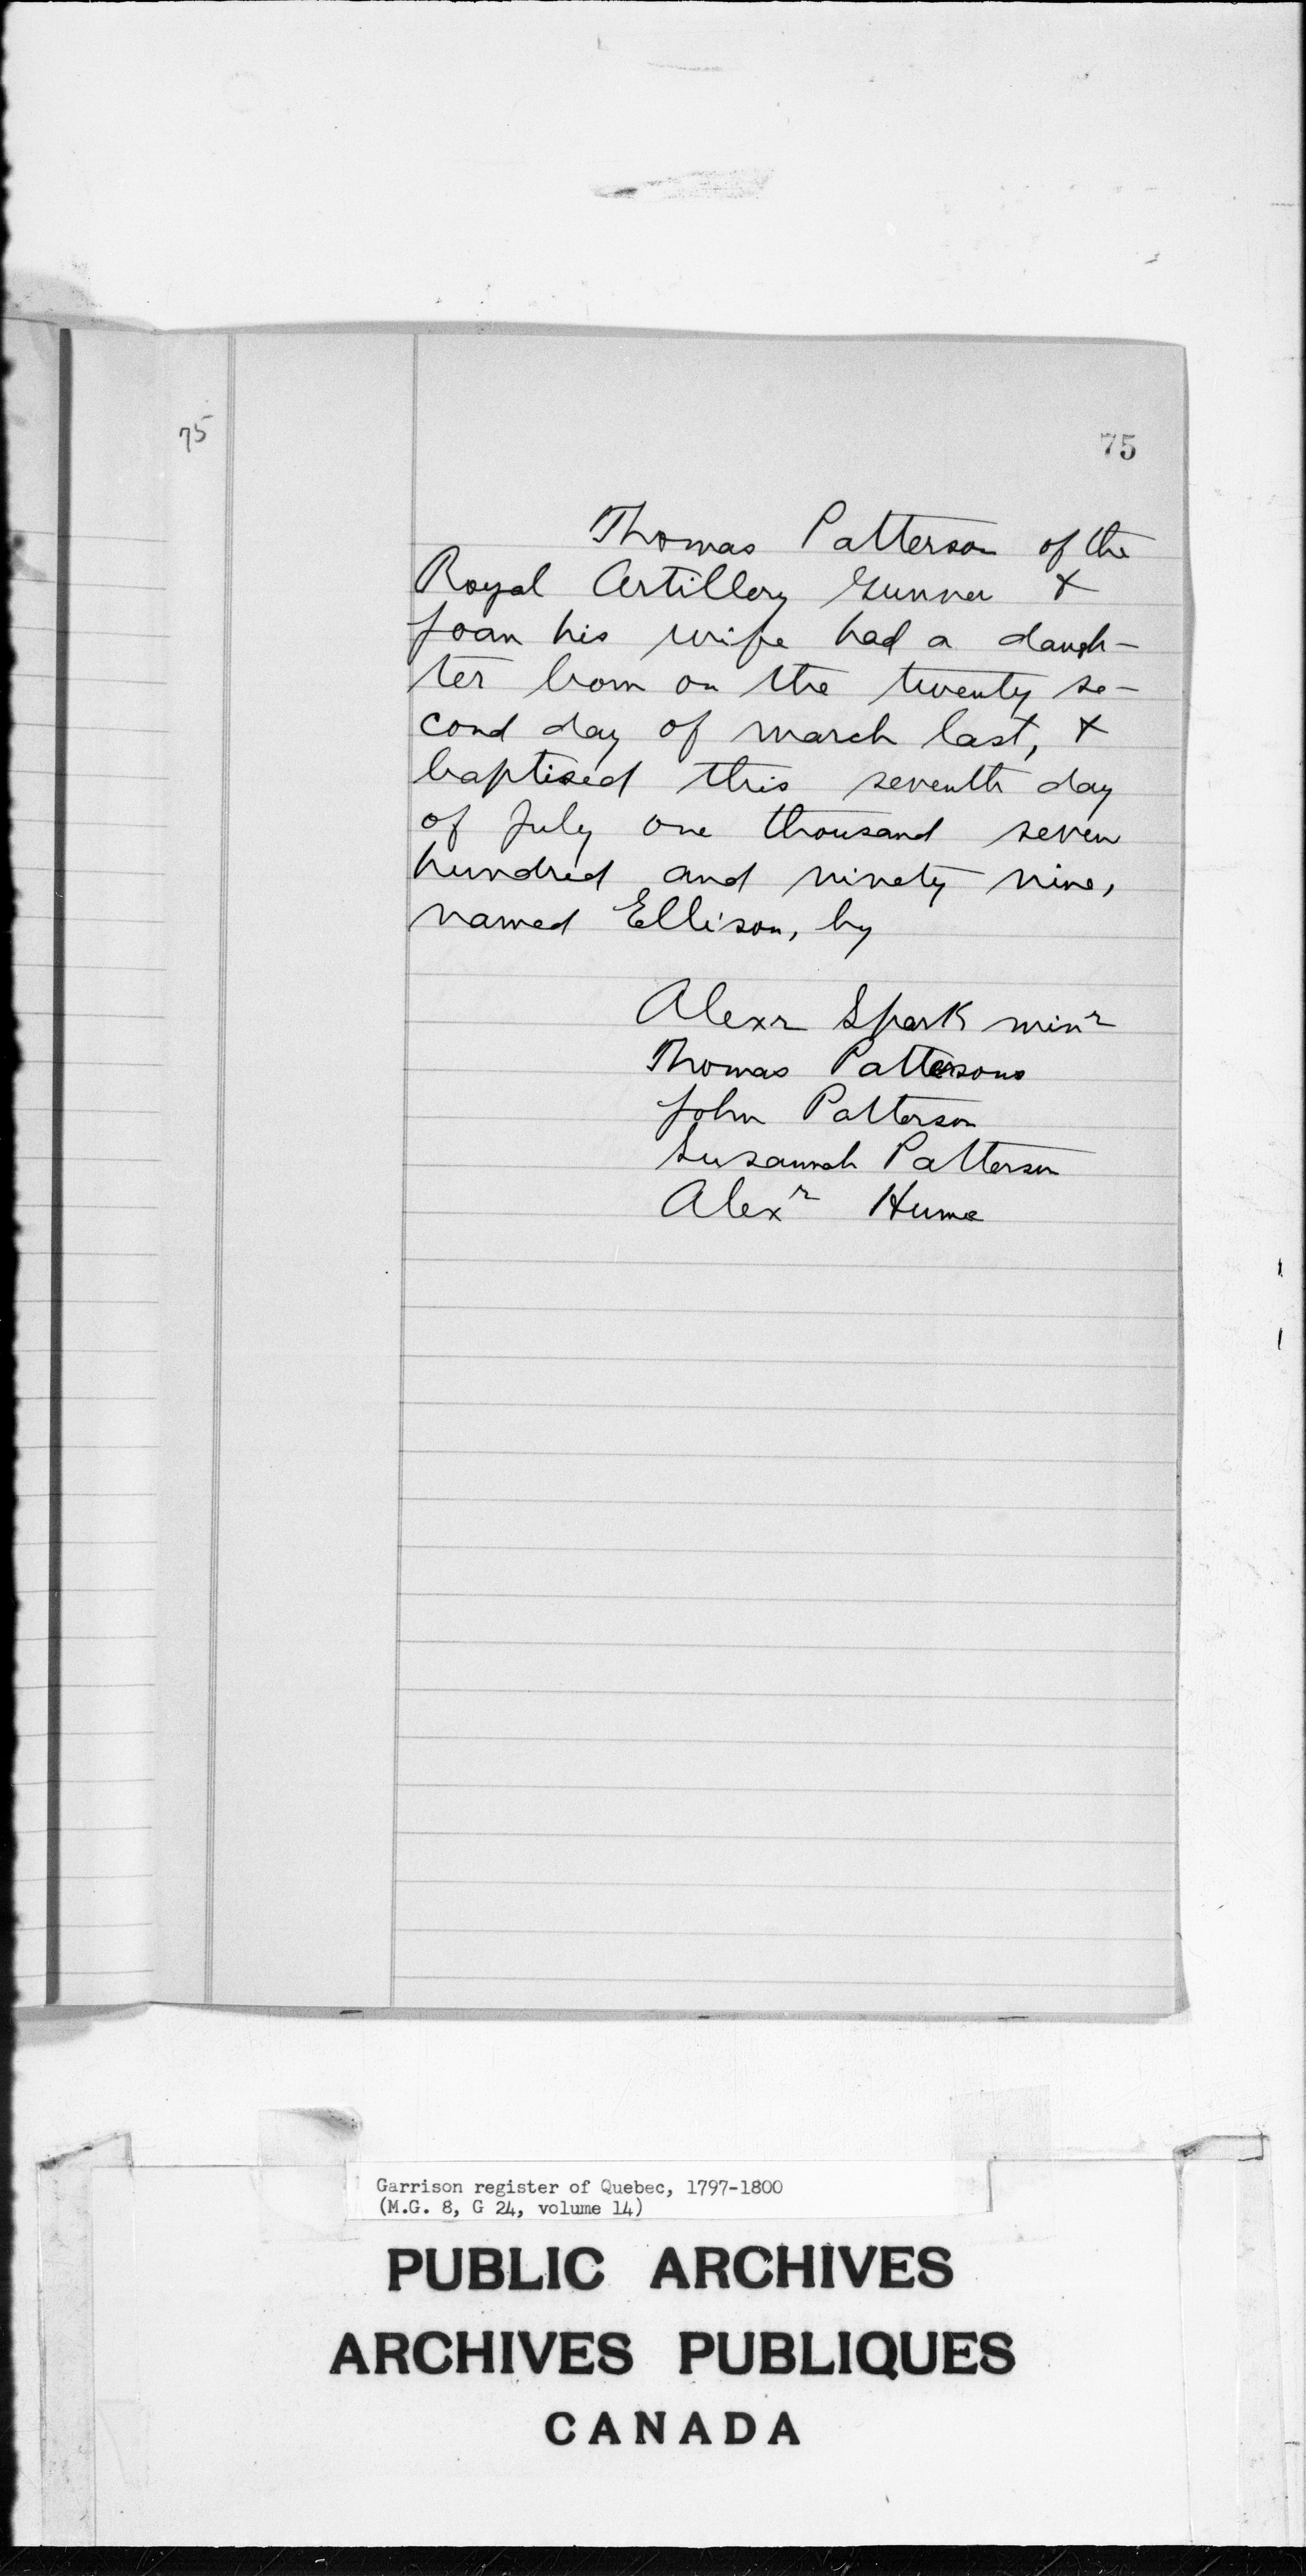 75
75
Thomas Patterson of the
Royal Artillery Gunner &
Joan his wife had a daugh-
ter born on the twenty se-
cond day of march last, &
baptised this seventh day
of July one thousand seven
hundred and ninety nine,
named Ellison, by
Alexr Spark minr
Thomas Pattersons
John Patterson
Susannah Patterson
Alexr Hume
Garrison register of Quebec, 1797-1800
(M.G. 8, G 24, volume 14)
PUBLIC ARCHIVES
ARCHIVES PUBLIQUES
CANADA